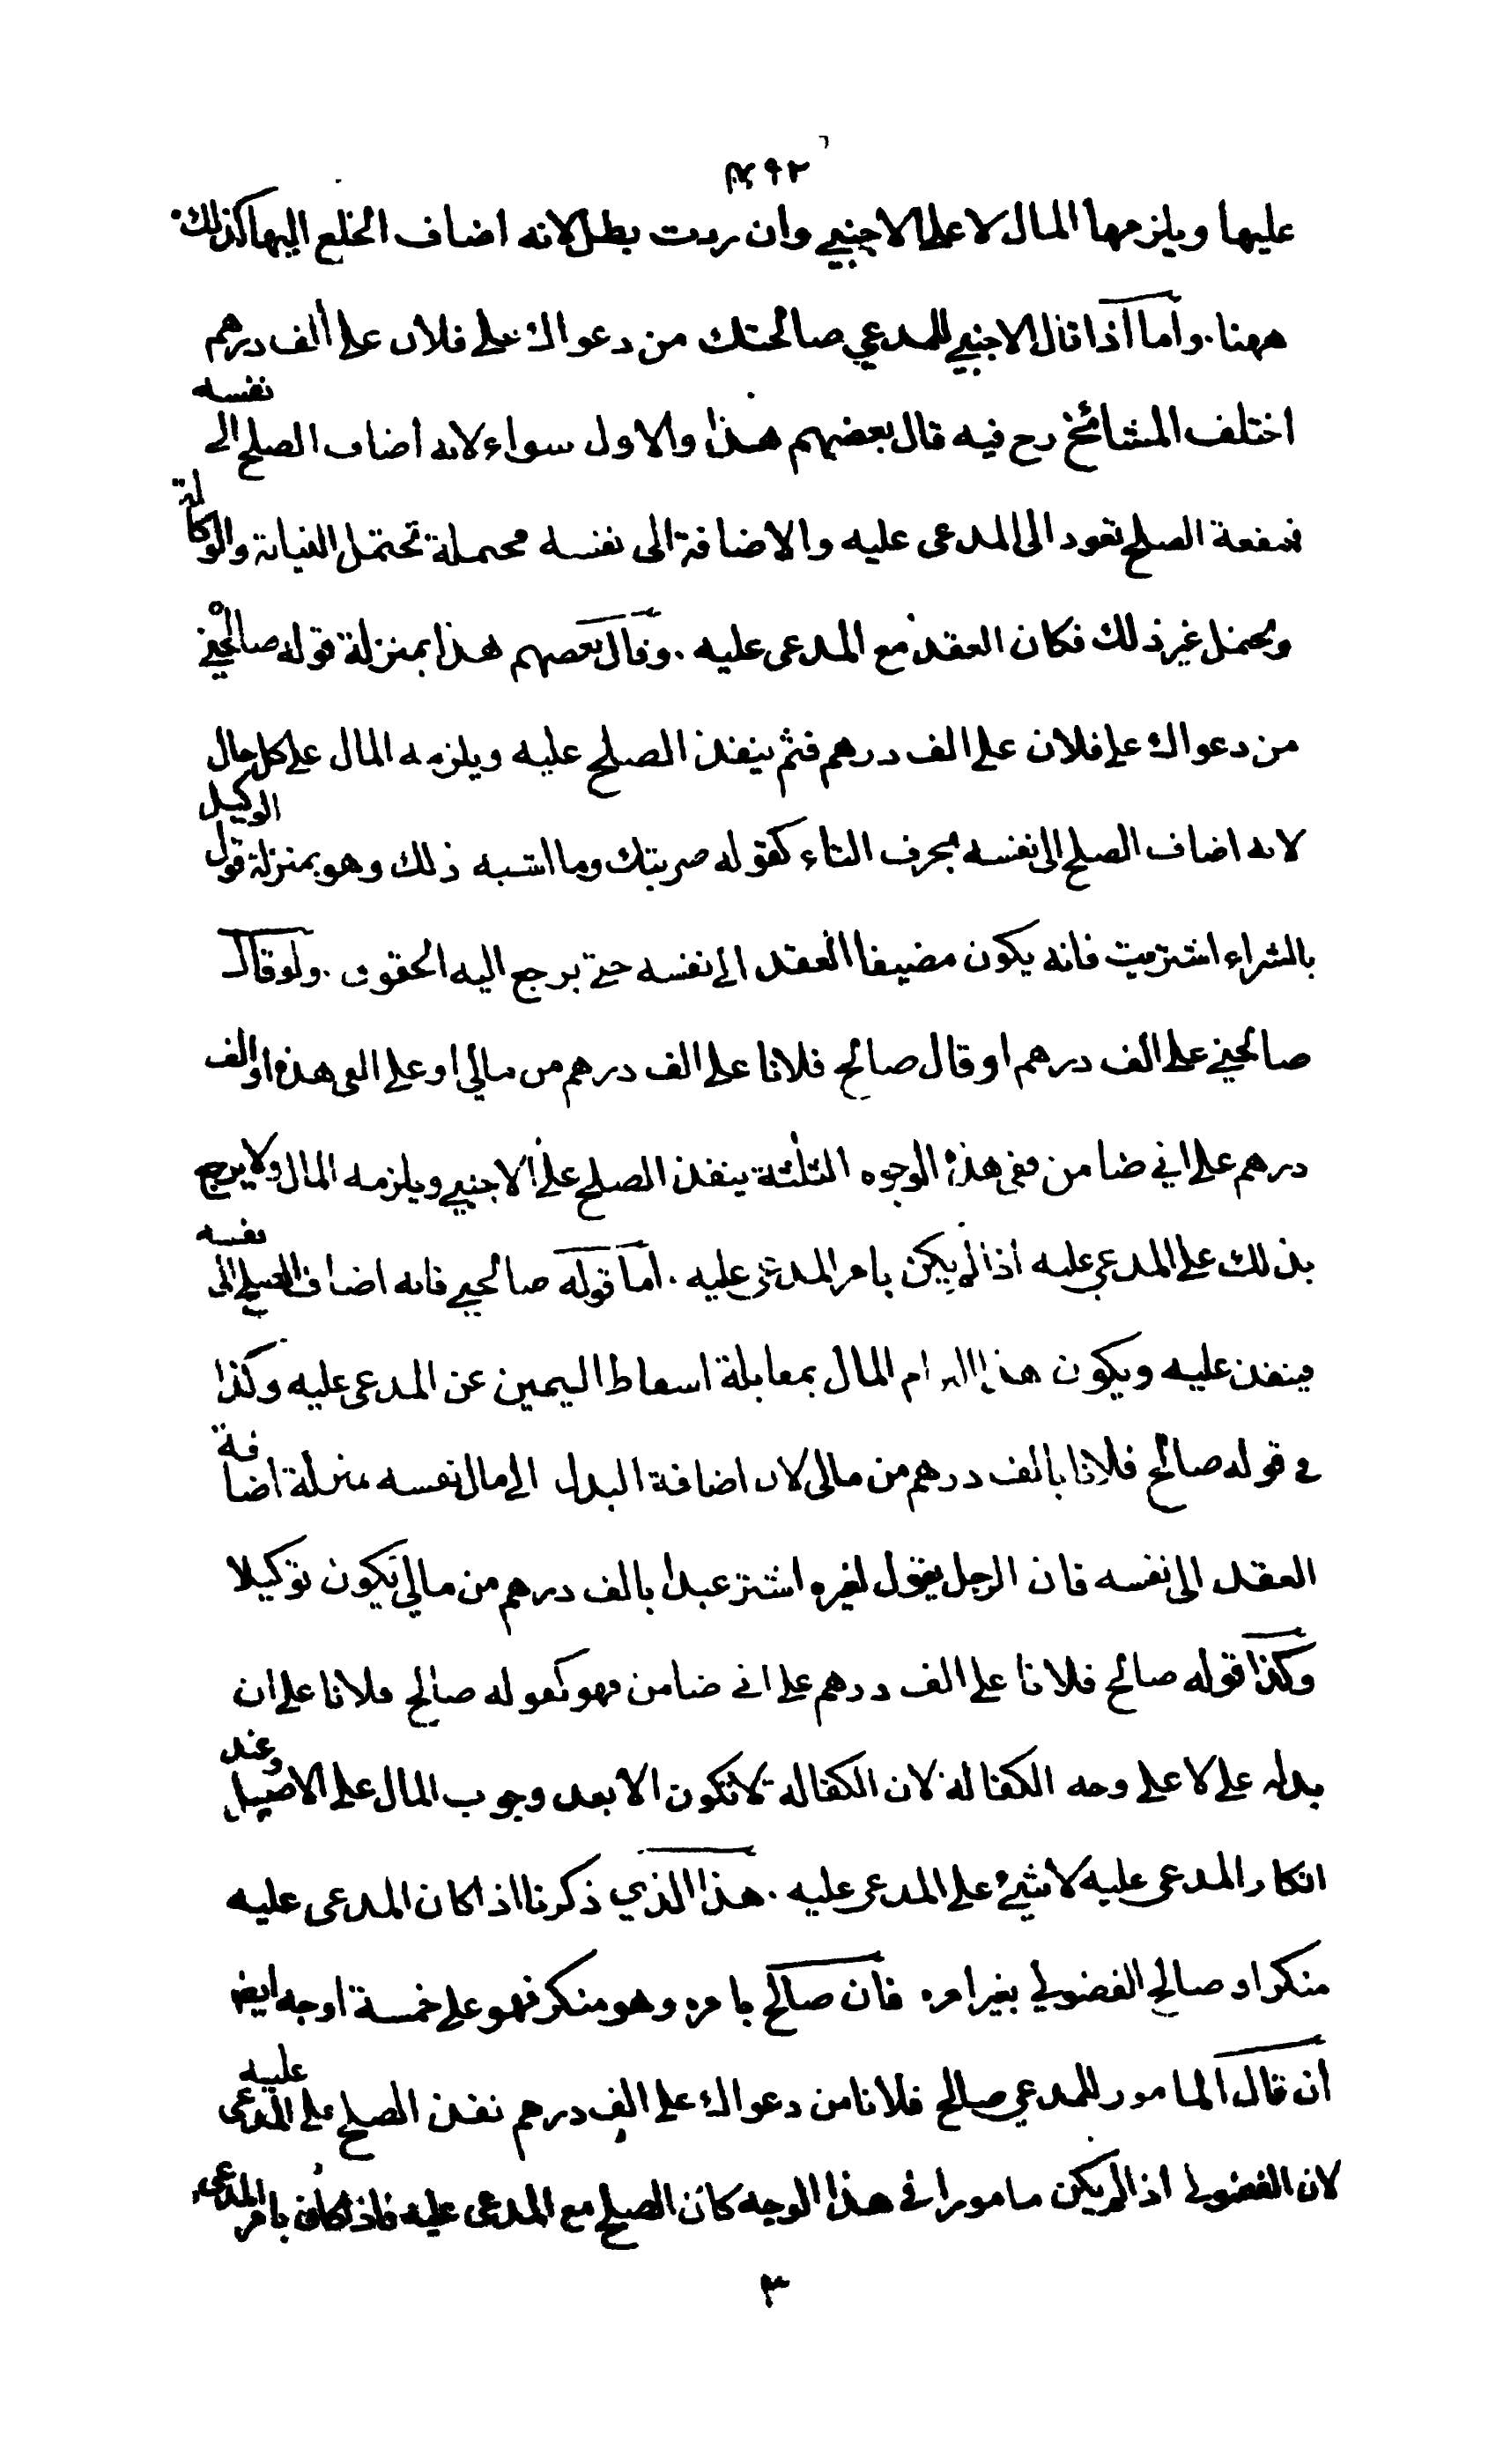 ٤٩٢
عليها ويلزمها المال لا على الاجنبي وان ردت بطل لانه اضاف الخلع اليها كذلك
ههنا. واما اذا قال الاجنبي للمدعي صالحتك من دعواك على فلان على الف درهم
اختلف المشائخ رح فيه قال بعضهم هذا والاول سواء لانه اضاف الصلح الى نفسه
فمنفعة الصلح تعود الى المدعى عليه والاضافة الى نفسه محتملة تحتمل النيابة والوكالة
ويحتمل غير ذلك فكان العقد مع المدعى عليه. وقال بعضهم هذا بمنزلة قوله صالحني
من دعواك على فلان على الف درهم فثم ينفذ الصلح عليه ويلزمه المال على كل حال
لانه اضاف الصلح الى نفسه بحرف التاء كقوله ضربتك وما اشبه ذلك وهو بمنزلة قول الوكيل
بالشراء اشتريت فانه يكون مضيفا العقد الى نفسه حتى يرجع اليه الحقوق. ولو قال
صالحني على الف درهم او قال صالح فلانا على الف درهم من مالي او على الفي هذه او الف
درهم على اني ضامن ففى هذه الوجوه الثلثة ينفذ الصلح على الاجنبي ويلزمه المال ولا يرجع
بذلك على المدعى عليه اذا لم يكن بامر المدعى عليه. اما قوله صالحني فانه اضاف الصلح الى نفسه
فينفذ عليه ويكون هذا التزام المال بمقابلة اسقاط اليمين عن المدعى عليه وكذا
في قوله صالح فلانا بالف درهم من مالى لان اضافة البدل الى مال نفسه بمنزلة اضافة
العقد الى نفسه فان الرجل يقول لغيره اشتر عبدا بالف درهم من مالي يكون توكيلا
وكذا قوله صالح فلانا على الف درهم على انى ضامن فهو كقوله صالح فلانا على ان
بدله على لا على وجه الكفالة لان الكفالة لا تكون الا بعد وجوب المال على الاصيل وعند
انكار المدعى عليه لا شئ على المدعى عليه. هذا الذي ذكرنا اذا كان المدعى عليه
منكرا وصالح الفضولي بغير امره فان صالح بامره وهو منكر فهو على خمسة اوجه ايضا
ان قال المامور للمدعي صالح فلانا من دعواك على الف درهم نفذ الصلح على المدعى عليه
لان الفضولى اذا لم يكن مامورا في هذا الوجه كان الصلح مع المدعى عليه فاذا كان بامر المدعى
٣